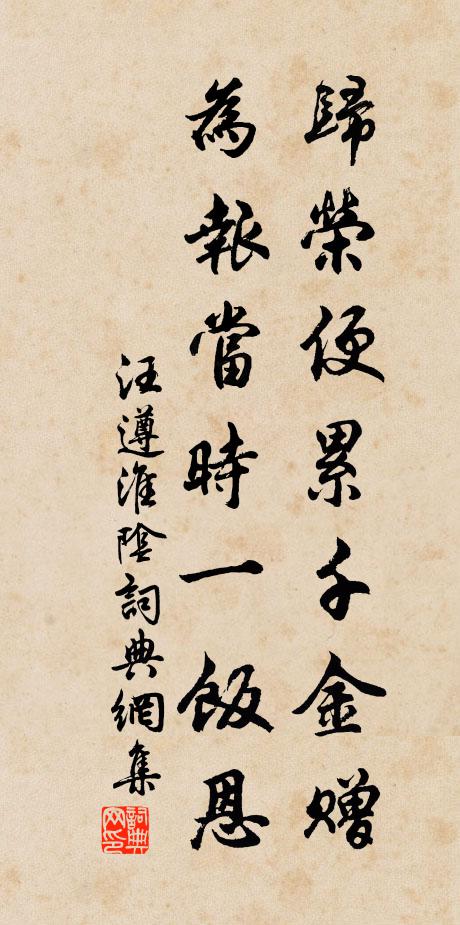 歸榮便累千金贈
為報當時一飯恩
汪遵淮陰詞典網集
詞典
网印